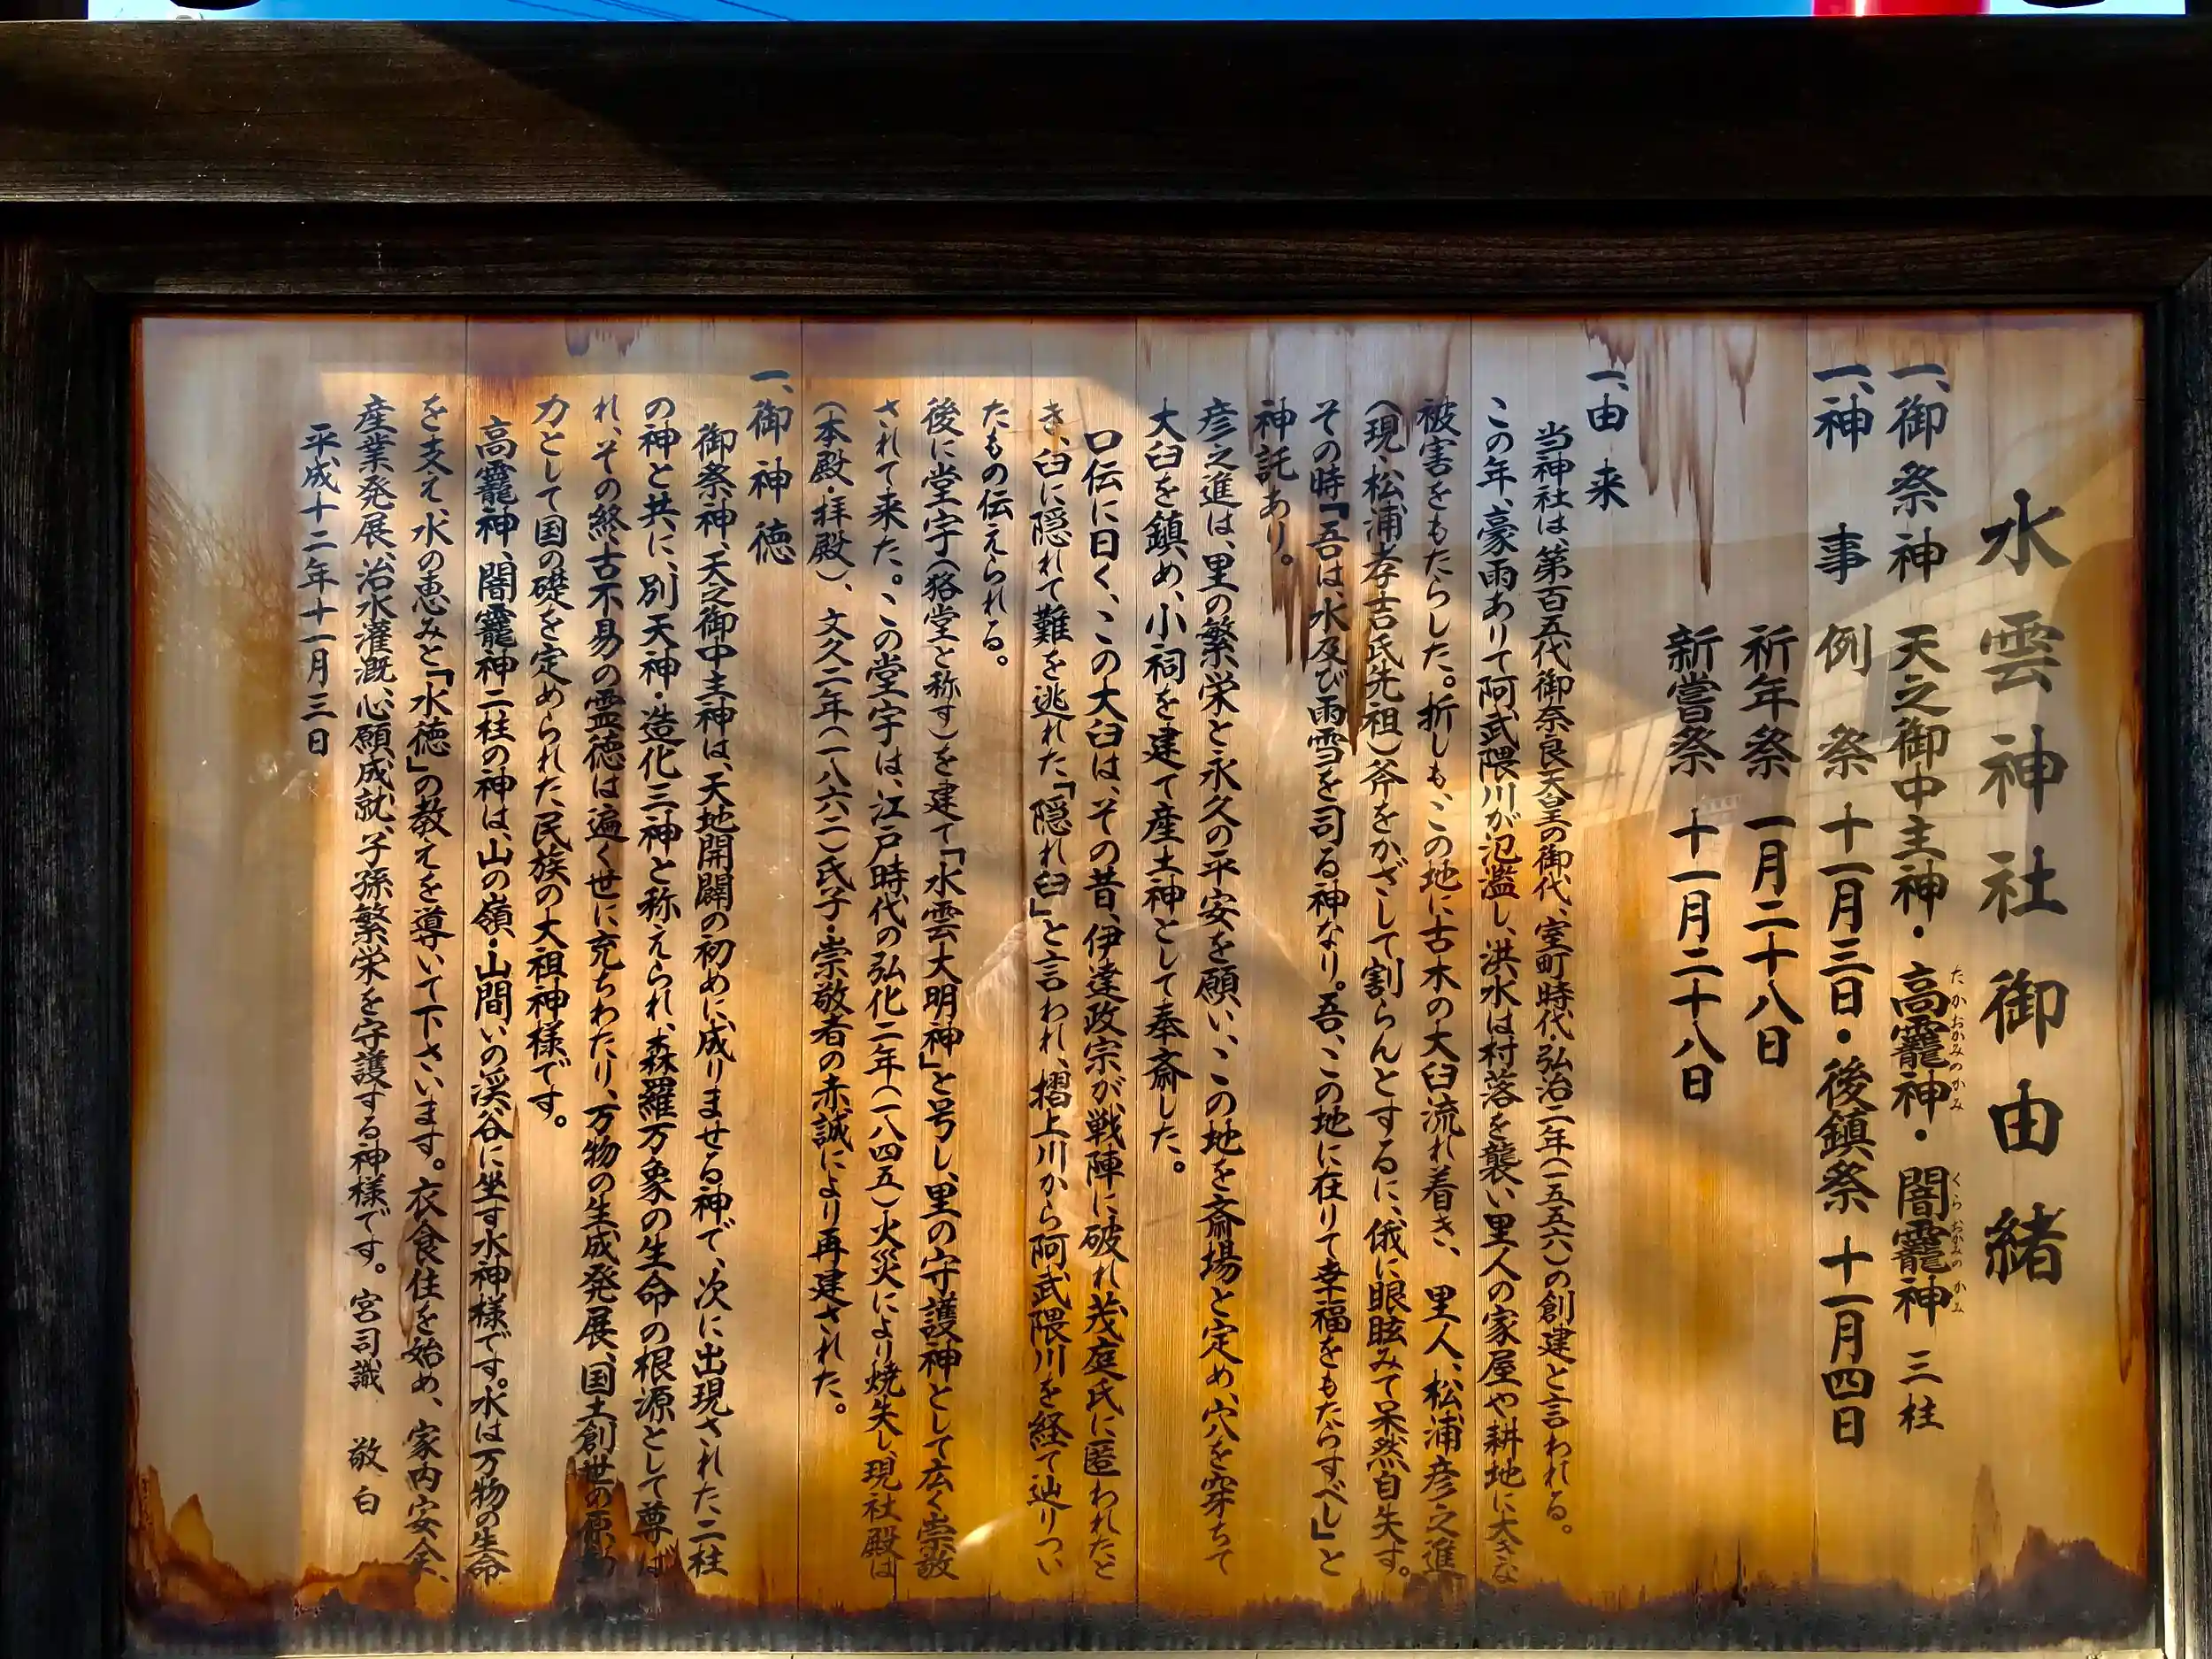 水雲神社御由緒
一、御祭神 天之御中主神・高龗神・闇龗神 三柱
たかおかみのかみ
くらおかみのかみ
一、神 事 例 祭 十一月三日・後鎮祭 十一月四日
祈年祭 一月二十八日
新嘗祭 十一月二十八日
一、由 来
当神社は、第百五代御奈良天皇の御代、室町時代・弘治二年(一五五六)の創建と言われる。
この年、豪雨ありて阿武隈川が氾濫し、洪水は村落を襲い里人の家屋や耕地に大きな
被害をもたらした。折しも、この地に古木の大臼流れ着き、里人、松浦彦之進
(現、松浦孝吉氏先祖)斧をかざして割らんとするに、俄に眼眩みて呆然自失す。
その時「吾は、水及び雨雪を司る神なり。吾、この地に在りて幸福をもたらすべし」と
神託あり。
彦之進は、里の繁栄と永久の平安を願い、この地を斎場と定め、穴を穿ちて
大臼を鎮め、小祠を建て産土神として奉斎した。
口伝に曰く、この大臼は、その昔、伊達政宗が、戦陣に破れ茂庭氏に匿われたと
き、臼に隠れて難を逃れた「隠れ臼」と言われ、摺上川から阿武隈川を経て辿りつい
たもの伝えられる。
後に堂宇(狢堂と称す)を建て「水雲大明神」と号し、里の守護神として広く崇敬
されて来た。この堂宇は、江戸時代の弘化二年(一八四五)火災により焼失し、現社殿は
(本殿・拝殿)、文久二年(一八六二)氏子・崇敬者の赤誠により再建された。
一、御 神 徳
御祭神、天之御中主神は、天地開闢の初めに成りませる神で、次に出現された二柱
の神と共に、別天神・造化三神と称えられ、森羅万象の生命の根源として尊ば
れ、その終古不易の霊徳は遍く世に充ちわたり、万物の生成発展、国土創世の原動
力として国の礎を定められた民族の大祖神様です。
高龗神、闇龗神二柱の神は、山の嶺・山間いの渓谷に坐す水神様です。水は万物の生命
を支え、水の恵みと「水徳」の教えを導いて下さいます。衣食住を始め、家内安全、
産業発展、治水灌漑、心願成就、子孫繁栄を守護する神様です。 宮司識 敬白
平成十二年十一月三日